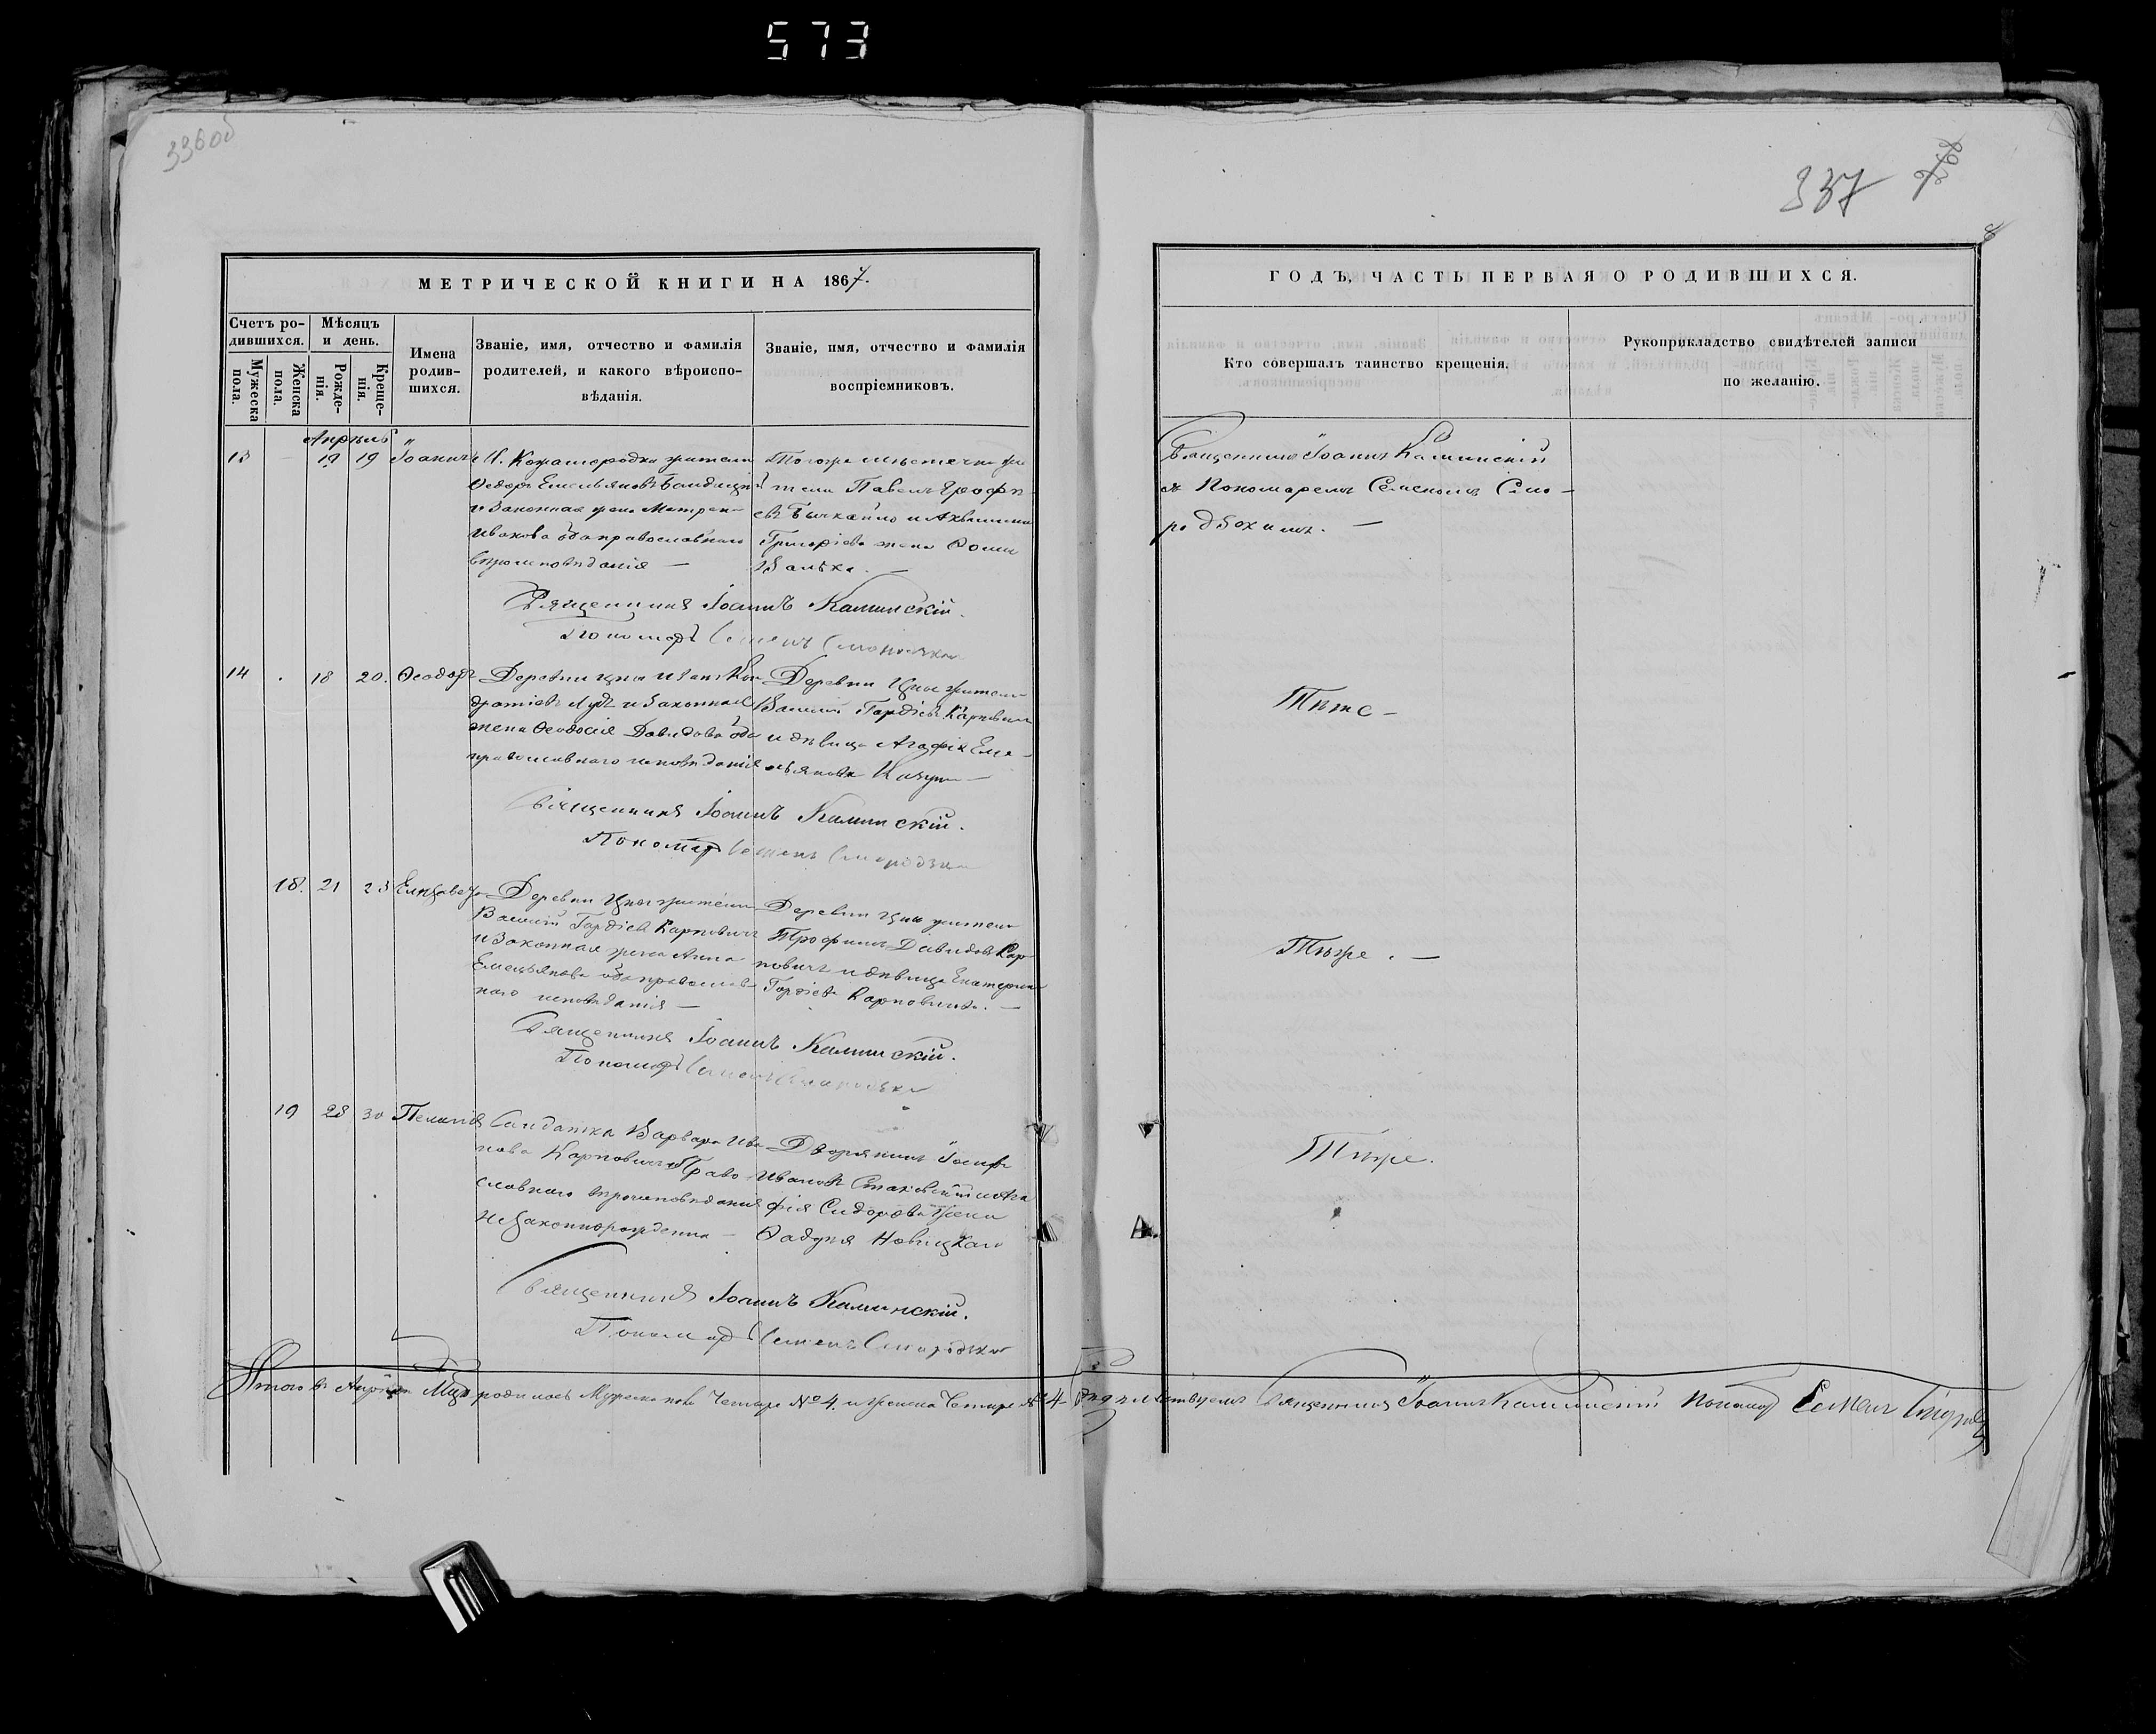 573
336об
337
268
8
МЕТРИЧЕСКОЙ КНИГИ НА 1867.
Счетъ ро-
дившихся.
Мѣсяцъ
и день.
Мужеска
пола.
Женска
пола.
Рожде-
нія.
Креще-
нія.
Имена
родив-
шихся.
Званіе, имя, отчество и фамилія
родителей, и какого вѣроиспо-
вѣданія.
Званіе, имя, отчество и фамилія
воспріемниковъ.
ГОДЪ, ЧАСТЬ ПЕРВАЯ О РОДИВШИХСЯ.
Кто совершалъ таинство крещенія.
Рукоприкладство свидѣтелей записи
по желанію.
Апрѣль
13 19 19 Іоаннъ
М. Кожангородка жители
Ѳедоръ Емельяновъ
и законная жена Матрона
Иванова оба православнаго
вѣроисповѣданія —
Тогоже мѣстечка жи
тели Павелъ
и Акилина
Григоріева жена Ѳомы
Священникъ Іоаннъ Каминскій
съ Пономаремъ Семеномъ Смо-
родзкимъ. —
Священникъ Іоаннъ Каминскій.
Пономарь Семенъ Смородзкій
14 18 20. Ѳеодоръ
Деревни Цны Иванъ Кон
дратіевъ и законная
жена Ѳеодосія Давидова оба
православнаго исповѣданія
Деревни Цны житель
Василій Гордіевъ Карповичъ
и дѣвица Агафія Еме-
льянова
Тѣже —
Священникъ Іоаннъ Каминскій.
Пономарь Семенъ Смородзкій
18. 21 23 Елизавета
Деревни Цны жители
Василій Гордіевъ Карповичъ
и законная жена Анна
Емельянова оба православ
наго исповѣданія —
Деревни Цны житель
Трофимъ Давидовъ Кар
повичъ и дѣвица Екатерина
Гордіева Карповичъ. —
Тѣже. —
Священникъ Іоаннъ Каминскій.
Пономарь Семенъ Смородзкій
19 28 30 Пелагія
Солдатка Варвара Ива
нова Карповичъ Право
славнаго вѣроисповѣданія
Незаконнорожденна —
Дворянинъ Іосифъ
Ивановъ и Ага
фія Сидорова жена
Ѳадѣя Новицкаго
Тѣже.
Священникъ Іоаннъ Каминскій.
Пономарь Семенъ Смородзкій
Итого въ Апрѣлѣ Мцѣ родилось Мужеска пола Четыре №4. и Женска Четыре №4 Священникъ Іоаннъ Каминскій Пономарь Семенъ